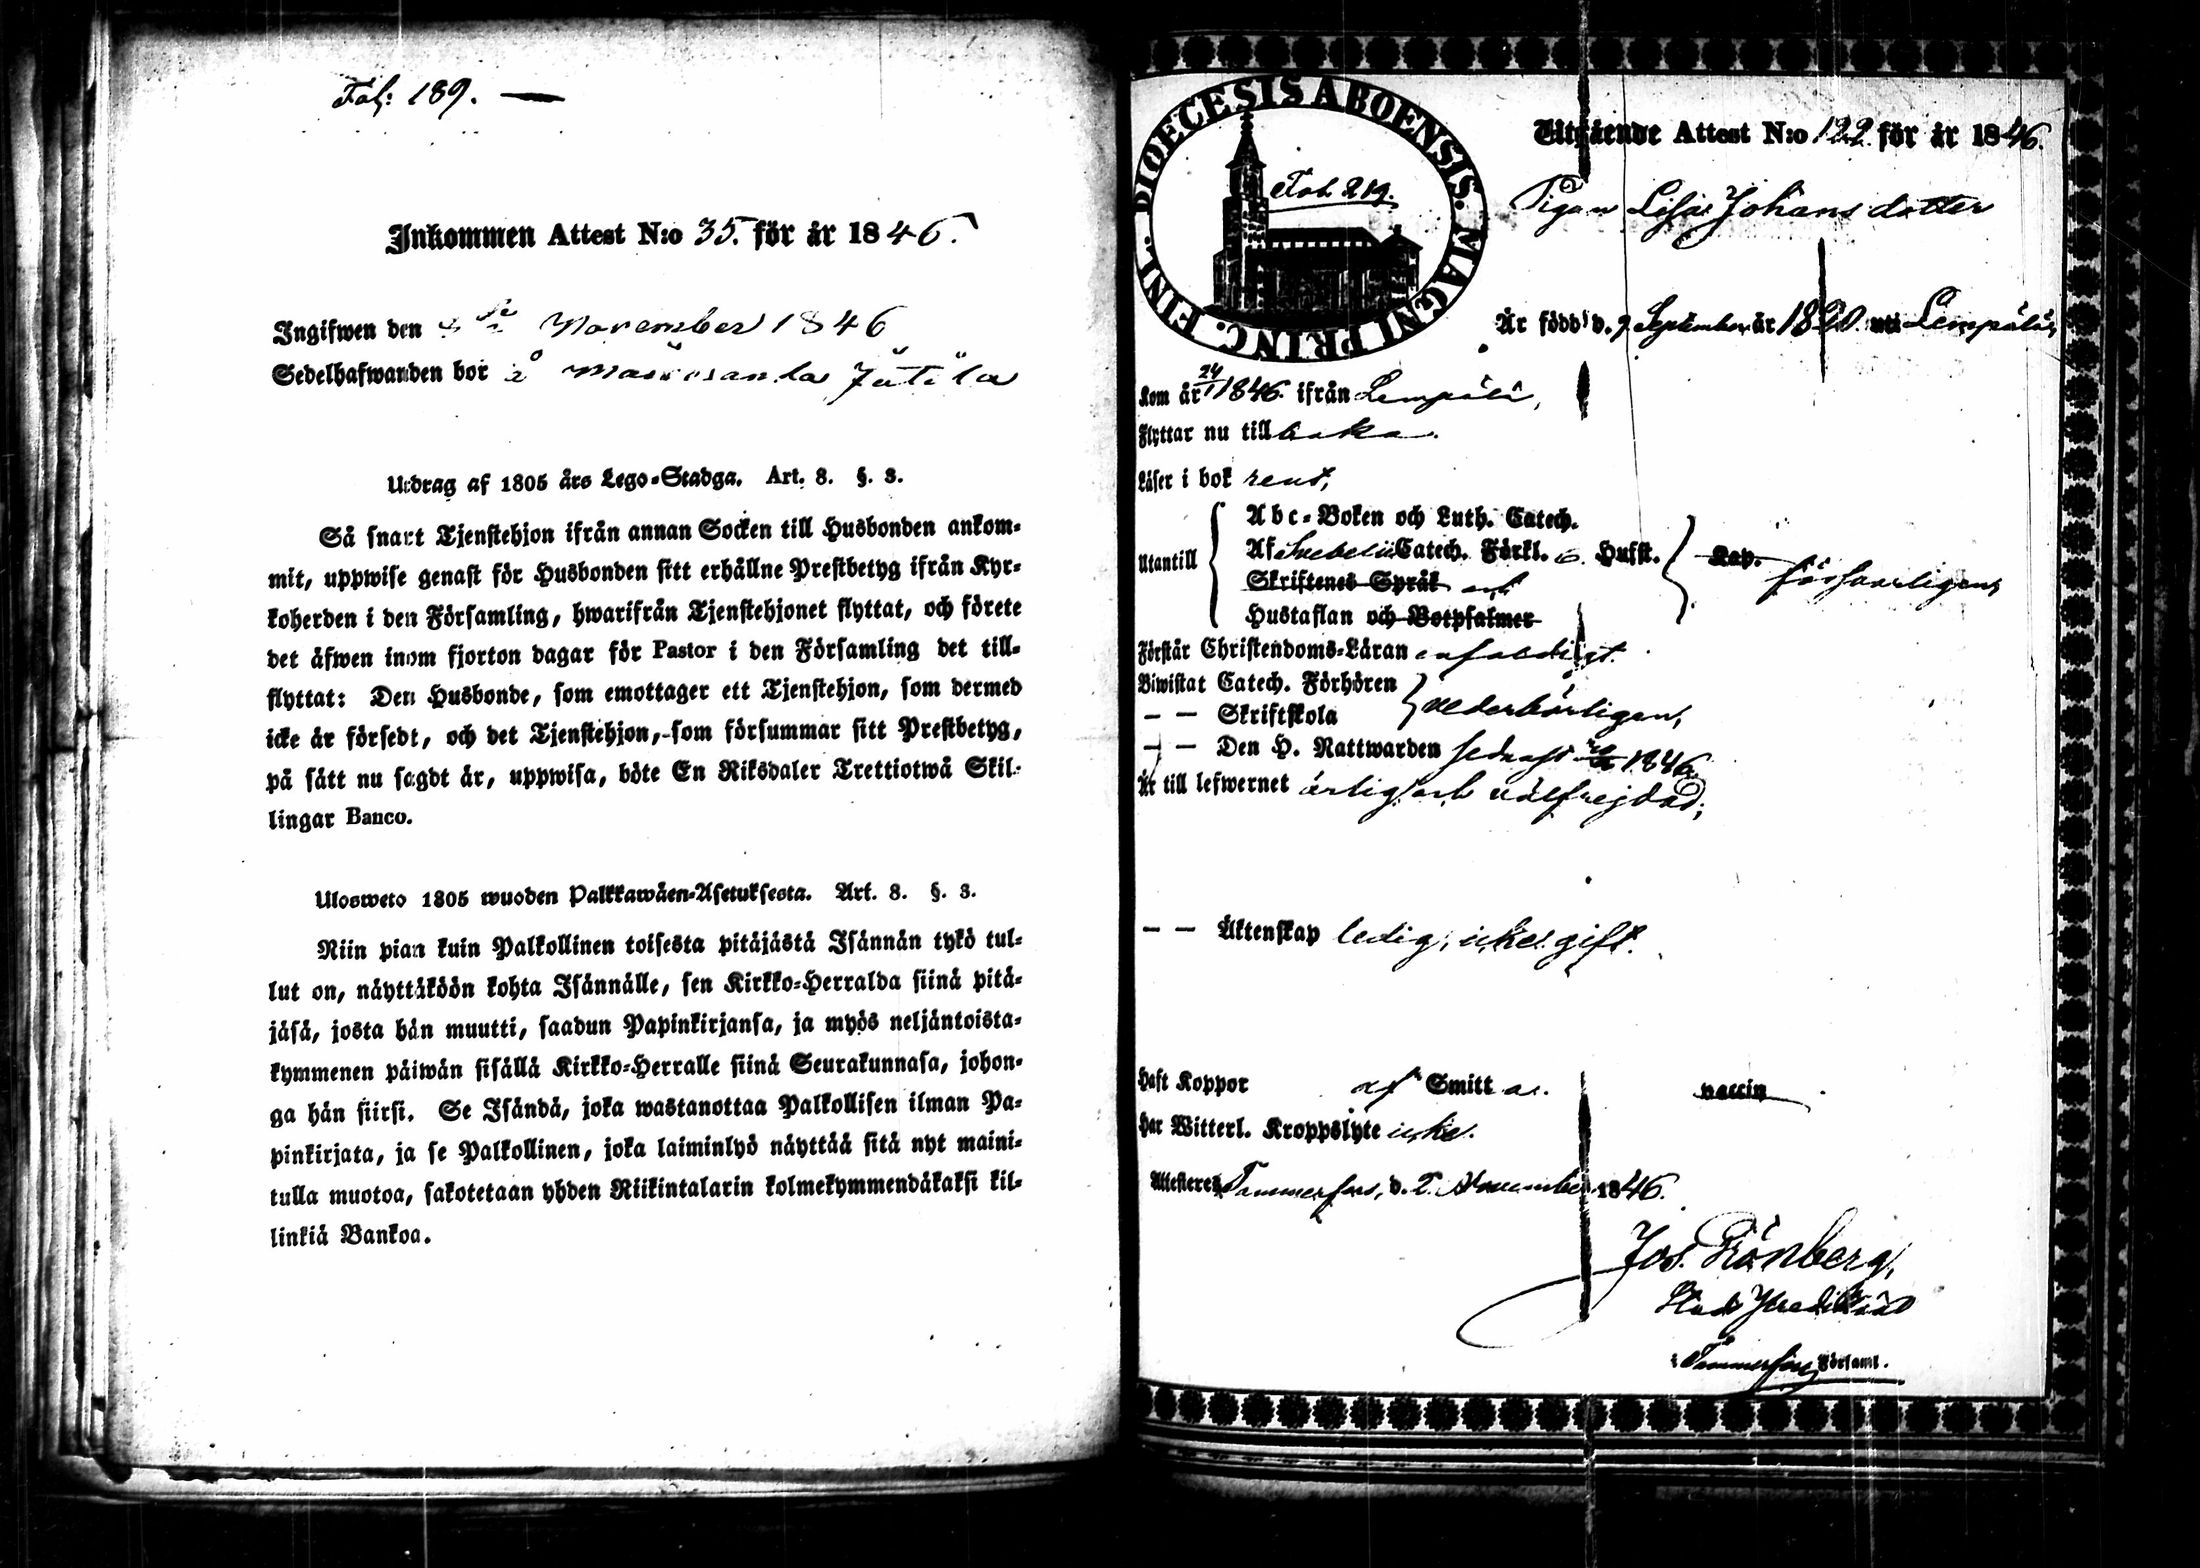 Fol: 189. —
Inkommen Attest N:o 35. för år 1846.
Ingifwen den November 1846
Sedelhafwanden bor å
Utdrag af 1805 års Lego-Stadga. Art. 8. §. 3.
Så snart Tjenstehjon ifrån annan Socken till Husbonden ankom-
mit, uppwise genast för Husbonden sitt erhållne Prestbetyg ifrån Kyr-
koherden i den Församling, hwarifrån Tjenstehjonet flyttat, och förete
det äfwen inom fjorton dagar för Pastor i den Församling det till-
flyttat: Den Husbonde, som emottager ett Tjenstehjon, som dermed
icke är försedt, och det Tjenstehjon, som försummar sitt Prestbetyg,
på sätt nu sagdt är, uppwisa, böte En Riksdaler Trettiotwå Skil-
lingar Banco.
Ulosweto 1805 wuoden Palkkawäen-Asetuksesta. Art. 8. §. 3.
Niin pian kuin Palkollinen toisesta pitäjästä Isännän tykö tul-
lut on, näyttäköön kohta Isännälle, sen Kirkko-Herralda siinä pitä-
jäsä, josta hän muutti, saadun Papinkirjansa, ja myös neljäntoista-
kymmenen päiwän sisällä Kirkko-Herralle siinä Seurakunnasa, johon-
ga hän siirsi. Se Isändä, joka wastanottaa Palkollisen ilman Pa-
pinkirjata, ja se Palkollinen, joka laiminlyö näyttää sitä nyt maini-
tulla muotoa, sakotetaan yhden Riikintalarin kolmekymmendäkaksi kil-
linkiä Bankoa.
DIOECESIS ABOENSIS. MAGNI PRINC. FINL.
Fol. 219.
Utgående Attest N:o 122. för år 1846.
Pigan Lisa Johansdotter
Är född d. 9. September år 1820. uti Lempälä,
Kom år 24/1 1846. ifrån Lempälä,
Flyttar nu tillbaka.
Läser i bok rent,
Utantill
Abc-Boken och Luth. Catech.
Af Svebelii Catech. Förkl. o. Husst.
Skriftenes Språk och
Hustaflan och Botpsalmer
Kap. försvarligen,
Förstår Christendoms-Läran enfaldigt.
Biwistat Catech. Förhören
— — Skriftskola
vederbörligen,
— — Den H. Nattwarden sednast 1846.
Är till lefwernet ärlig och välfrejdad;
— — Äktenskap ledig, icke gift.
Haft Koppor af Smitta. vaccin
Har Witterl. Kroppslyte icke.
Attesteres Tammerfors, d. 2. November 1846.
Jos. Grönberg,
i Tammerfors Församl.